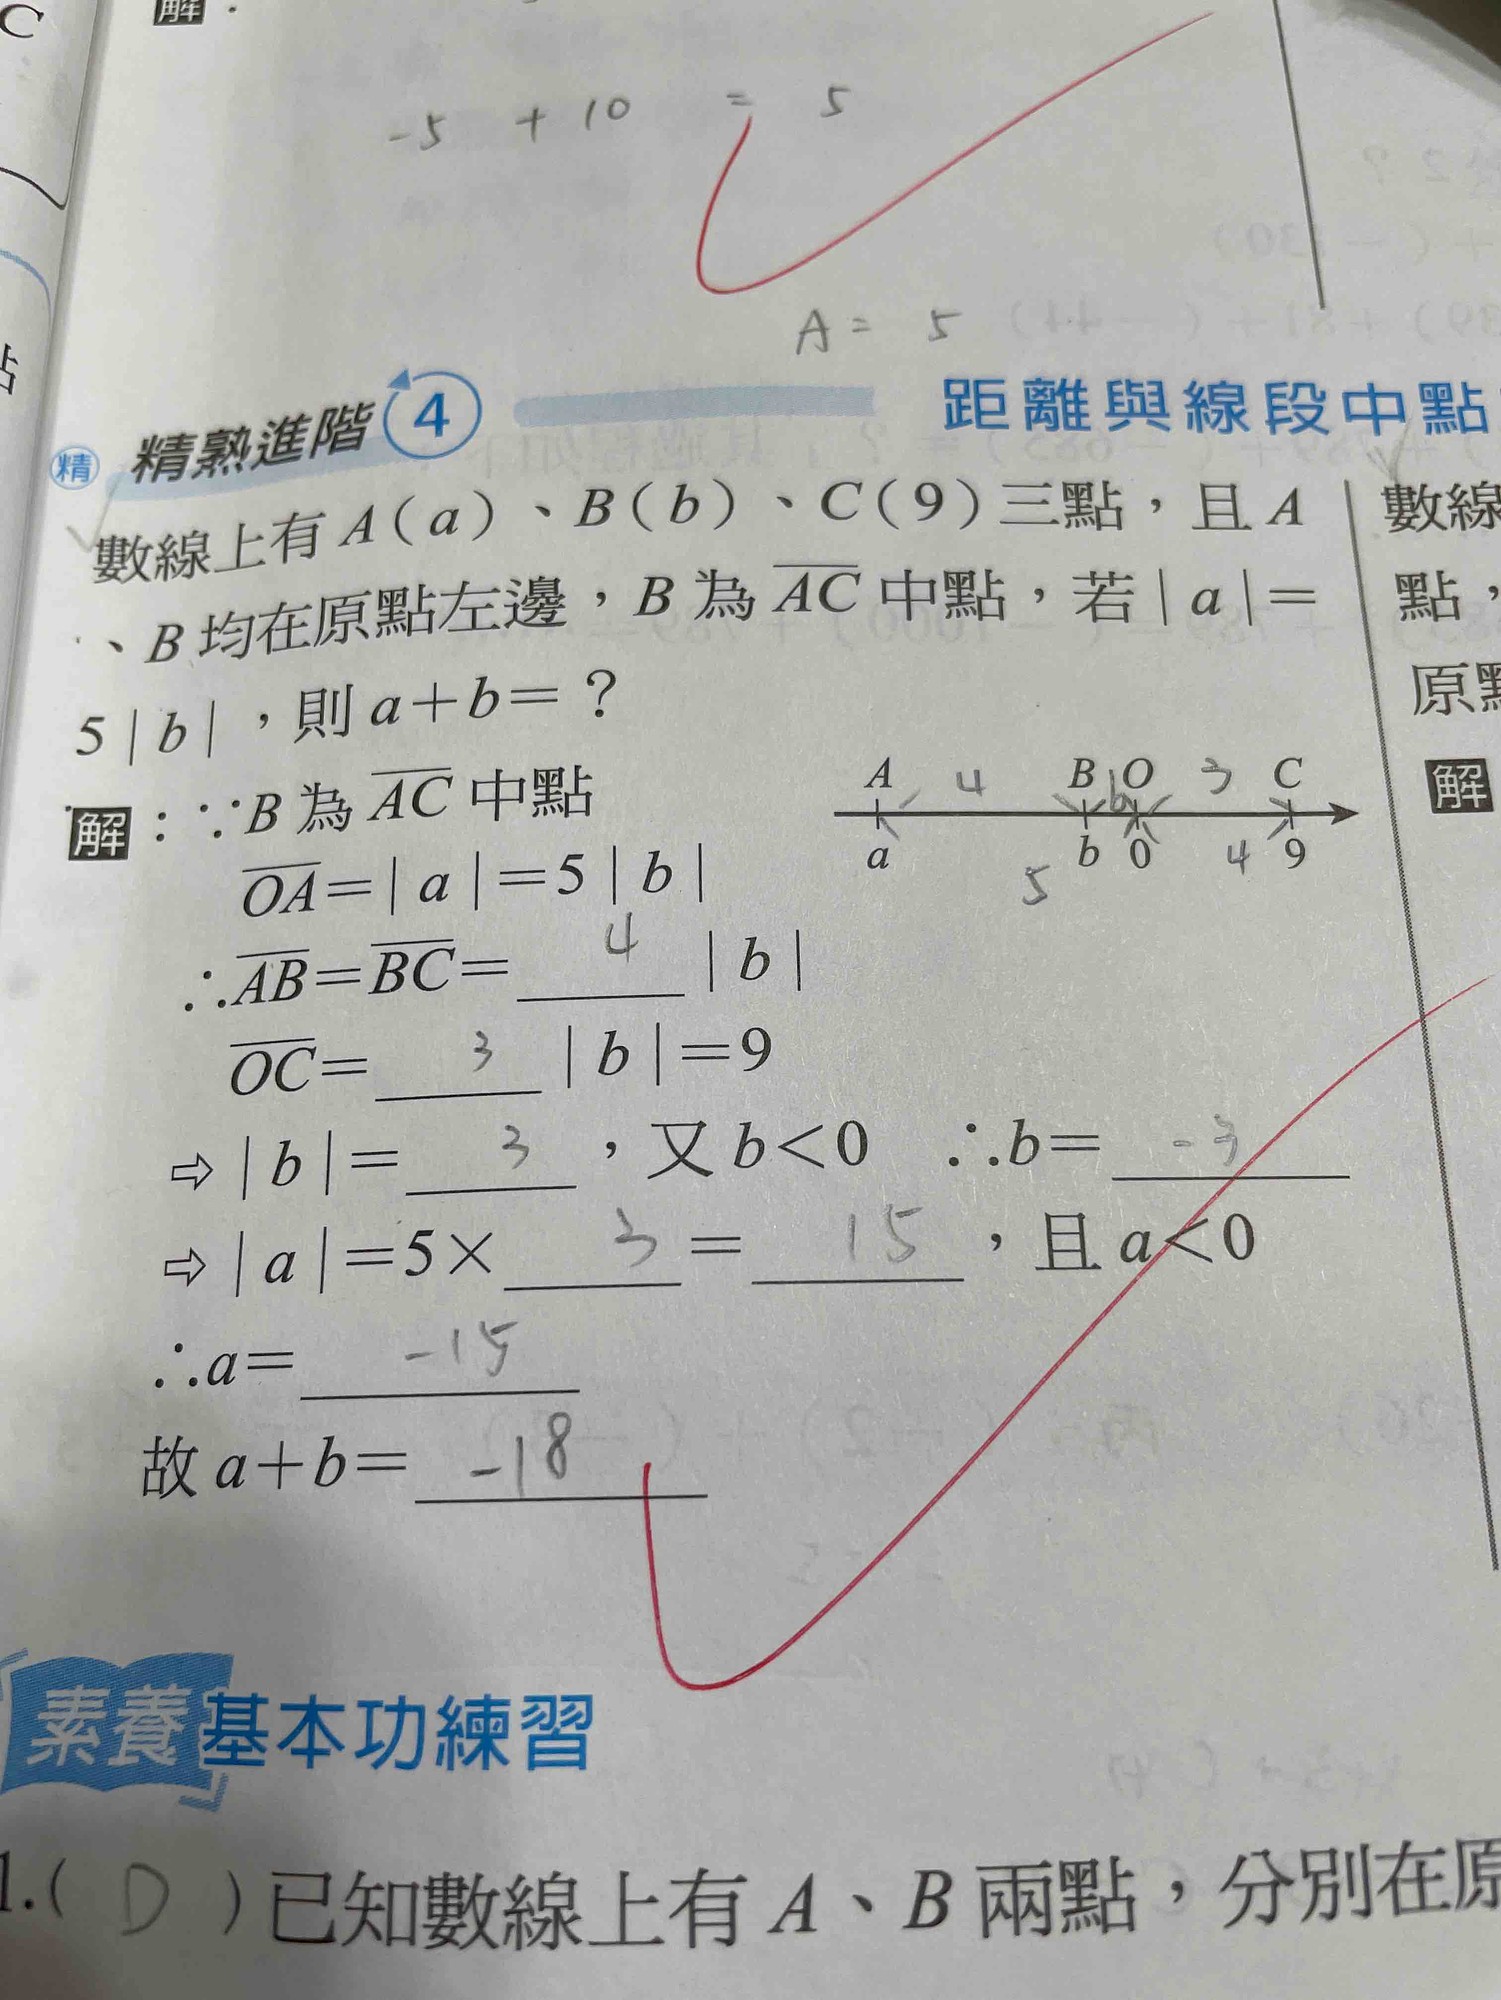 C
解：
-5 + 10 = 5
A = 5
精 精熟進階 4 距離與線段中點
數線上有 A(a)、B(b)、C(9)三點，且 A
、B 均在原點左邊，B 為 AC 中點，若|a|=
5|b|，則 a+b=？
解：∵B 為 AC 中點
A 4 B O 3 C
a b 0 4 9
5
OA=|a|=5|b|
∴AB=BC= 4 |b|
OC= 3 |b|=9
⇨|b|= 3 ，又 b<0 ∴b= -3
⇨|a|=5× 3 = 15 ，且 a<0
∴a= -15
故 a+b= -18
數線
點，
原點
解
素養基本功練習
1.( D )已知數線上有 A、B 兩點，分別在原